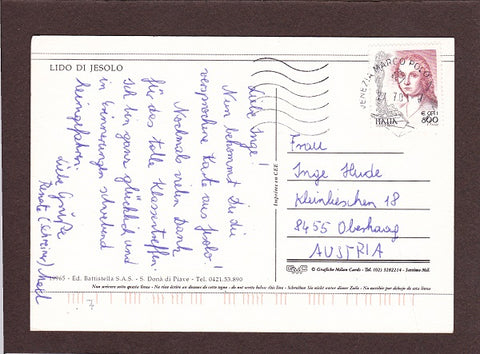 LIDO DI JESOLO
Liebe Inge!
Nun bekommst Du die
versprochene Karte aus Jesolo!
Nochmals vielen Dank
für das tolle Klassentreffen
ich bin ganz glücklich und
in Erinnerungen schwelend
heimgefahren.
Liebe Grüße
Renate
VENEZIA MARCO POLO
ITALIA
€ 0,41
800
Frau
Inge Hude
Kleinlieschen 18
8455 Oberhaag
AUSTRIA
Imprimé en CEE
Ed. Battistella S.A.S. - S. Donà di Piave - Tel. 0421.53.890
© Grafiche Milan Cards - Tel. (02) 5392214 - Saronno Mil.
Non scrivere sotto questa linea - Ne rien écrire au dessous de cette ligne - do not write below this line - Schreiben Sie nicht unter dieser Zeile - No escribir por debajo de esta línea
7